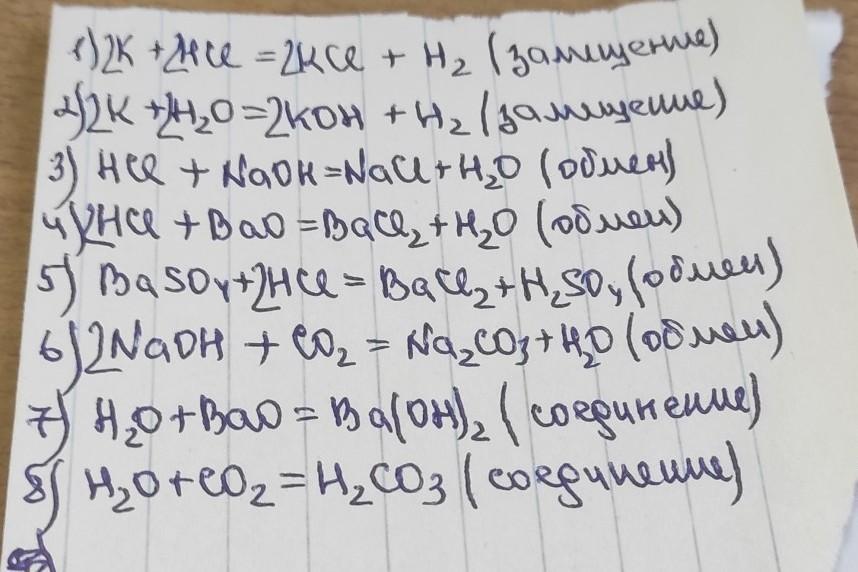 1) 2K + 2HCl = 2KCl + H₂ (замещение)
2) 2K + 2H₂O = 2KOH + H₂ (замещение)
3) HCl + NaOH = NaCl + H₂O (обмен)
4) 2HCl + BaO = BaCl₂ + H₂O (обмен)
5) BaSO₄ + 2HCl = BaCl₂ + H₂SO₄ (обмен)
6) 2NaOH + CO₂ = Na₂CO₃ + H₂O (обмен)
7) H₂O + BaO = Ba(OH)₂ (соединение)
8) H₂O + CO₂ = H₂CO₃ (соединение)